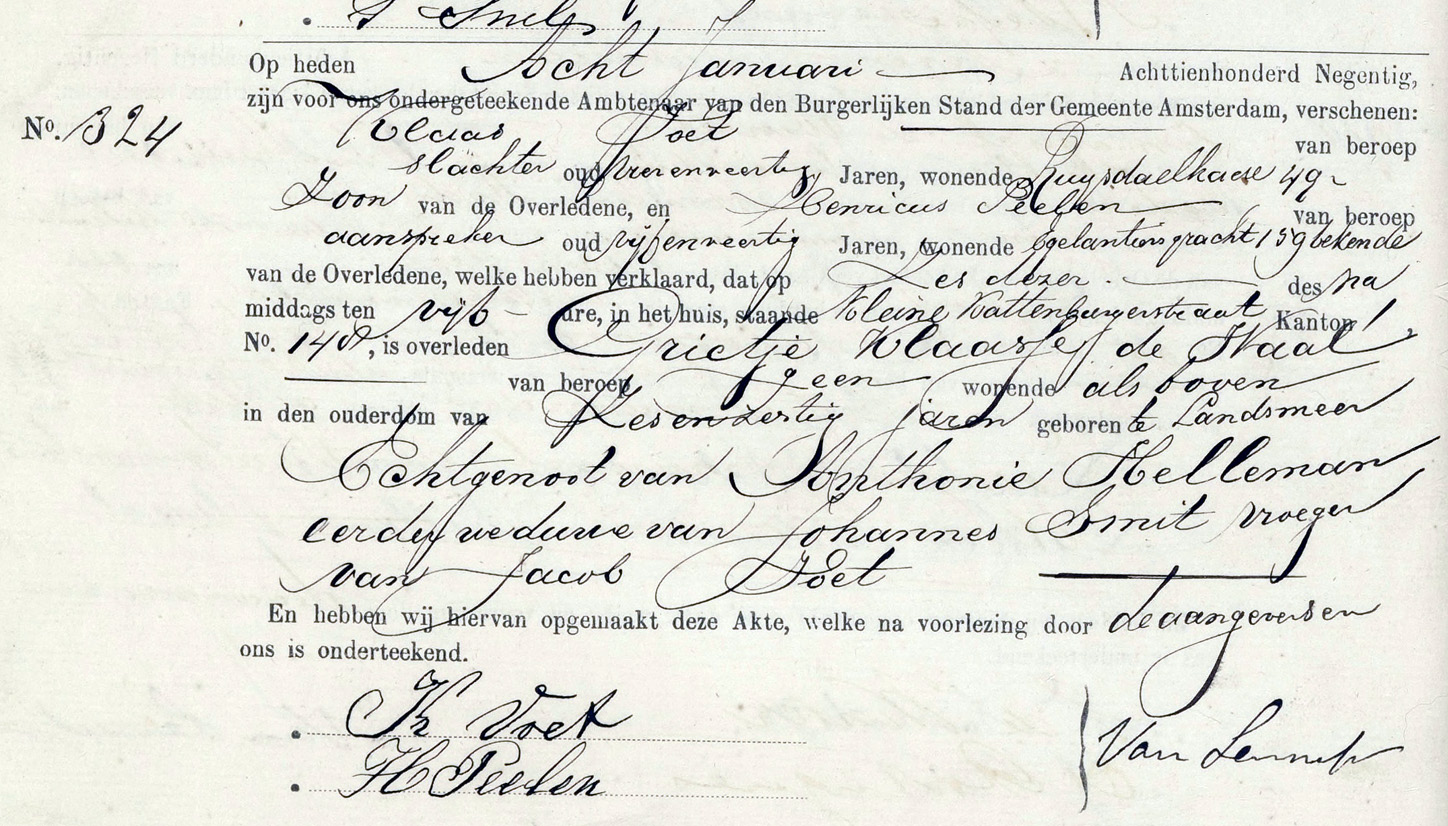 Snel
Op heden Acht Januari Achttienhonderd Negentig,
zijn voor ons ondergeteekende Ambtenaar van den Burgerlijken Stand der Gemeente Amsterdam, verschenen:
No. 324
Klaas Voet van beroep
slachter oud vierenveertig Jaren, wonende Ruysdaelkade 49
Zoon van de Overledene, en Henricus Peelen van beroep
aanspreker oud vijfenveertig Jaren, wonende Egelantiersgracht 159 bekende
van de Overledene, welke hebben verklaard, dat op Zes dezer. des na
middags ten vijf ure, in het huis, staande Kleine Kattenburgerstraat Kanton 1
No. 14, is overleden Grietje Klaasje de Waal
van beroep geen wonende als boven
in den ouderdom van Zesenzestig jaren geboren te Landsmeer
Echtgenoot van Anthonie Helleman
eerder weduwe van Johannes Smit vroeger
van Jacob Voet
En hebben wij hiervan opgemaakt deze Akte, welke na voorlezing door de aangevers en
ons is onderteekend.
K Voet
H Peelen
Van Lennep